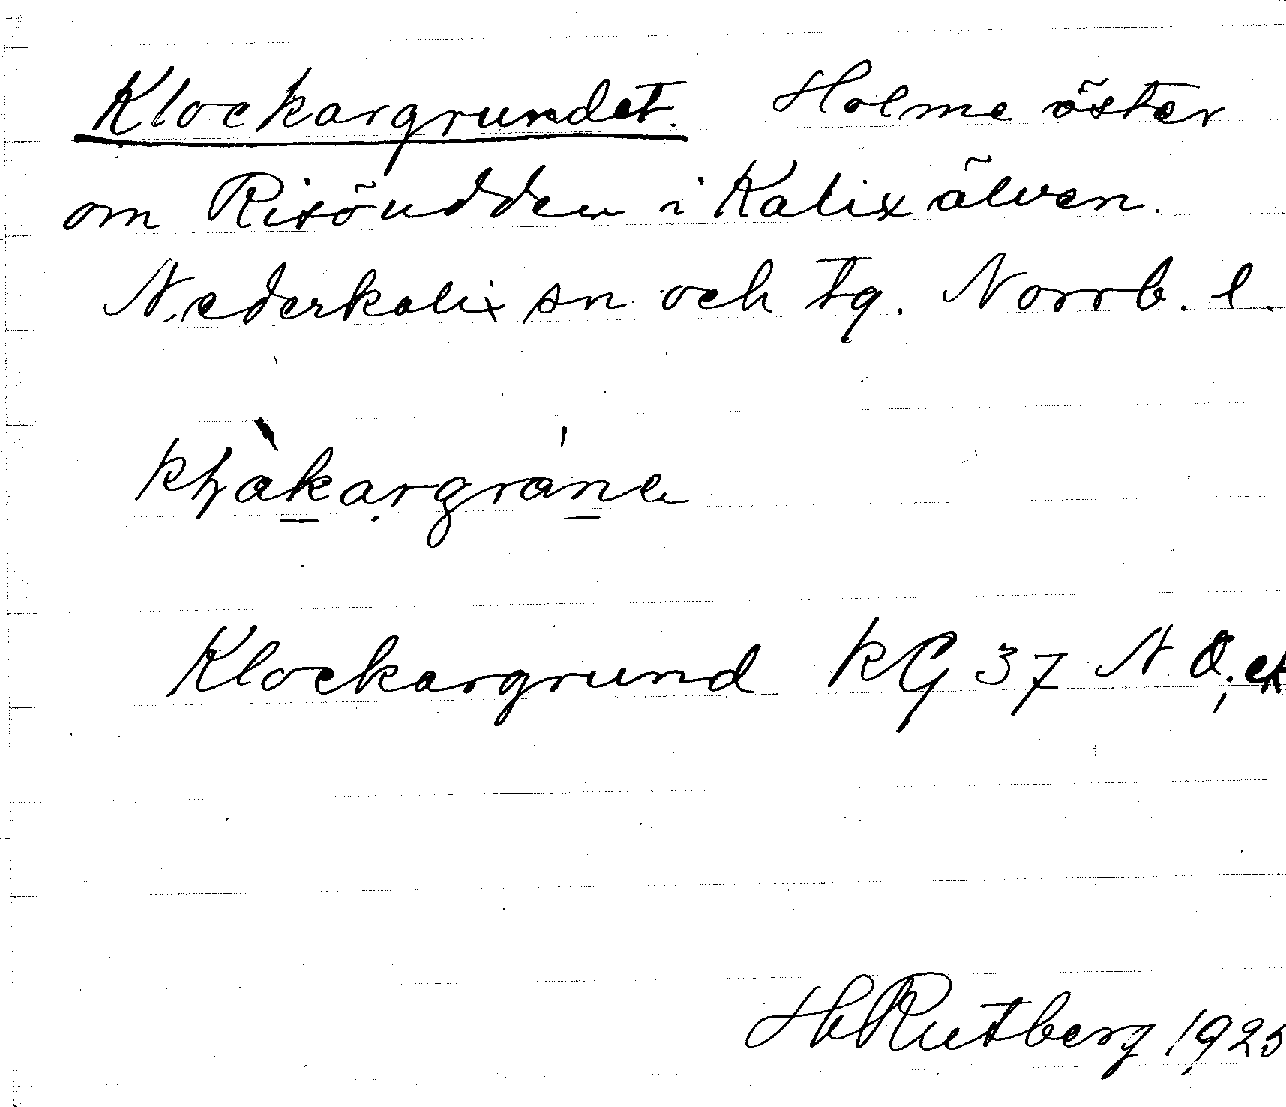 Klockargrundet. Holme öster
om Risöudden i Kalix älven.
Nederkalix sn och tg. Norrb. l.
Klockargrund KG 37 N O; ek
H Rutberg 1925